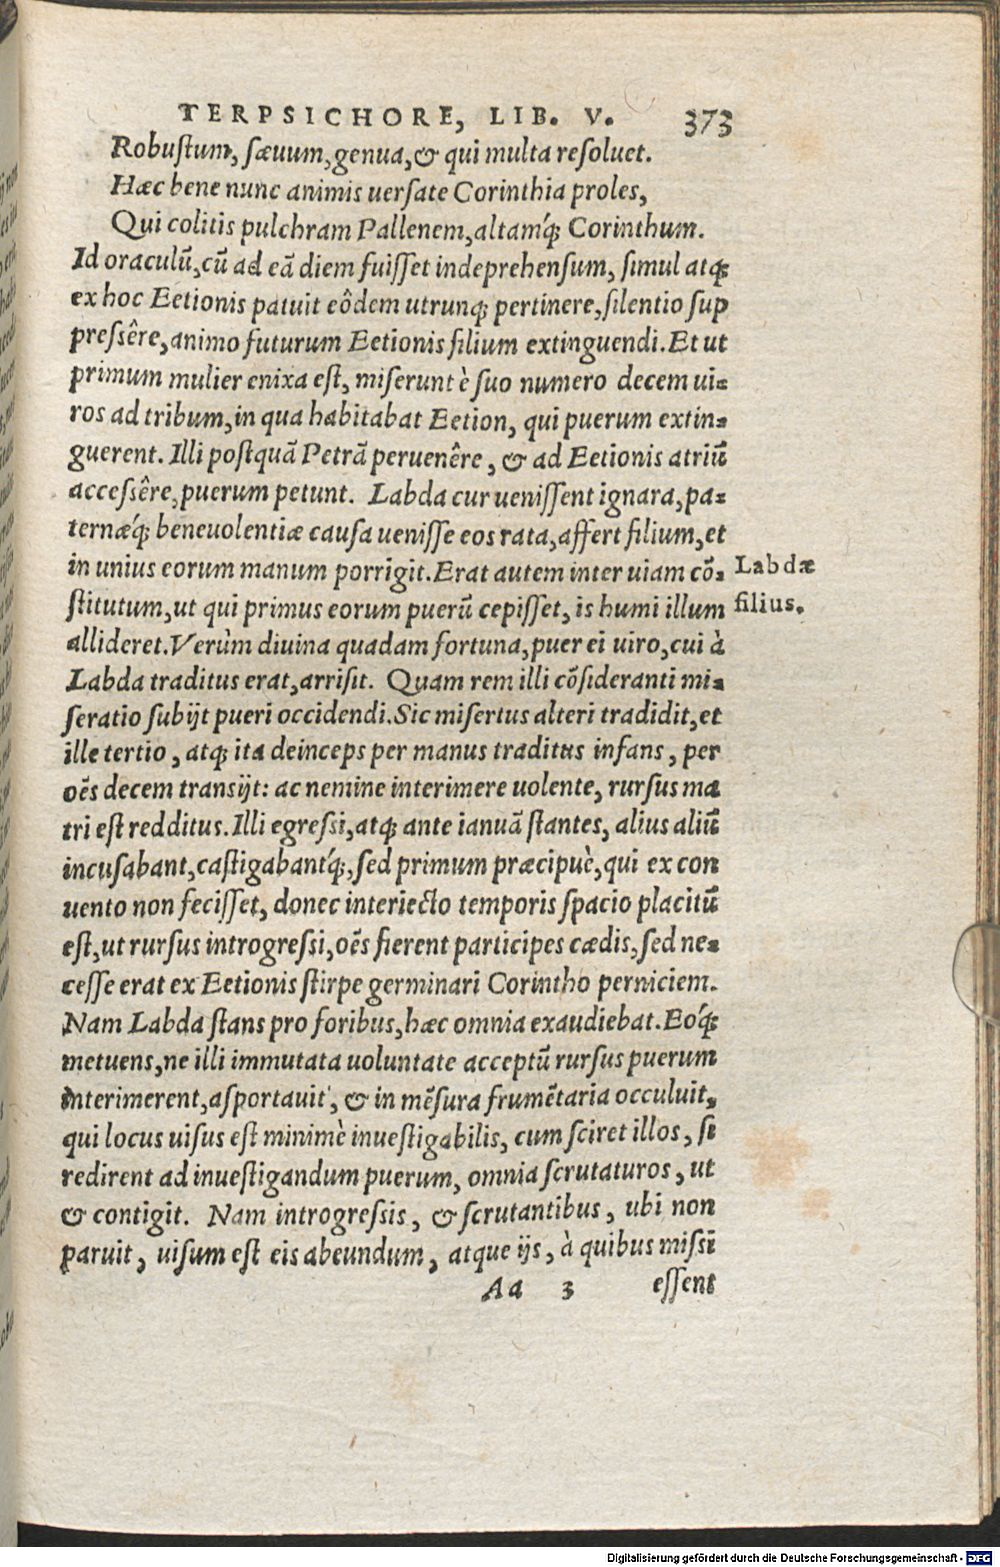 TERPSICHORE, LIB. V. 373
Robustum, sæuum, genua, & qui multa resoluet.
Hæc bene nunc animis uersate Corinthia proles,
Qui colitis pulchram Pallenem, altamq́; Corinthum.
Id oraculũ, cũ ad eã diem fuisset indeprehensum, simul atq;
ex hoc Eetionis patuit eôdem utrunq; pertinere, silentio sup
pressêre, animo futurum Eetionis filium extinguendi. Et ut
primum mulier enixa est, miserunt è suo numero decem ui-
ros ad tribum, in qua habitabat Eetion, qui puerum extin-
guerent. Illi postquã Petrã peruenêre, & ad Eetionis atriũ
accessêre, puerum petunt. Labda cur uenissent ignara, pa-
ternæq́; beneuolentiæ causa uenisse eos rata, affert filium, et
in unius eorum manum porrigit. Erat autem inter uiam cõ-
stitutum, ut qui primus eorum puerũ cepisset, is humi illum
allideret. Verùm diuina quadam fortuna, puer ei uiro, cui à
Labda traditus erat, arrisit. Quam rem illi cõsideranti mi-
seratio subijt pueri occidendi. Sic misertus alteri tradidit, et
ille tertio, atq; ita deinceps per manus traditus infans, per
oẽs decem transijt: ac nemine interimere uolente, rursus ma
tri est redditus. Illi egressi, atq; ante ianuã stantes, alius aliũ
incusabant, castigabantq́;, sed primum præcipuè, qui ex con
uento non fecisset, donec interiecto temporis spacio placitũ
est, ut rursus introgressi, oẽs fierent participes cædis, sed ne-
cesse erat ex Eetionis stirpe germinari Corintho perniciem.
Nam Labda stans pro foribus, hæc omnia exaudiebat. Eoq́;
metuens, ne illi immutata uoluntate acceptũ rursus puerum
interimerent, asportauit, & in mẽsura frumẽtaria occuluit,
qui locus uisus est minimè inuestigabilis, cum sciret illos, si
redirent ad inuestigandum puerum, omnia scrutaturos, ut
& contigit. Nam introgressis, & scrutantibus, ubi non
paruit, uisum est eis abeundum, atque ijs, à quibus missi
Aa 3 essent
Labdæ
filius.
Digitalisierung gefördert durch die Deutsche Forschungsgemeinschaft - DFG